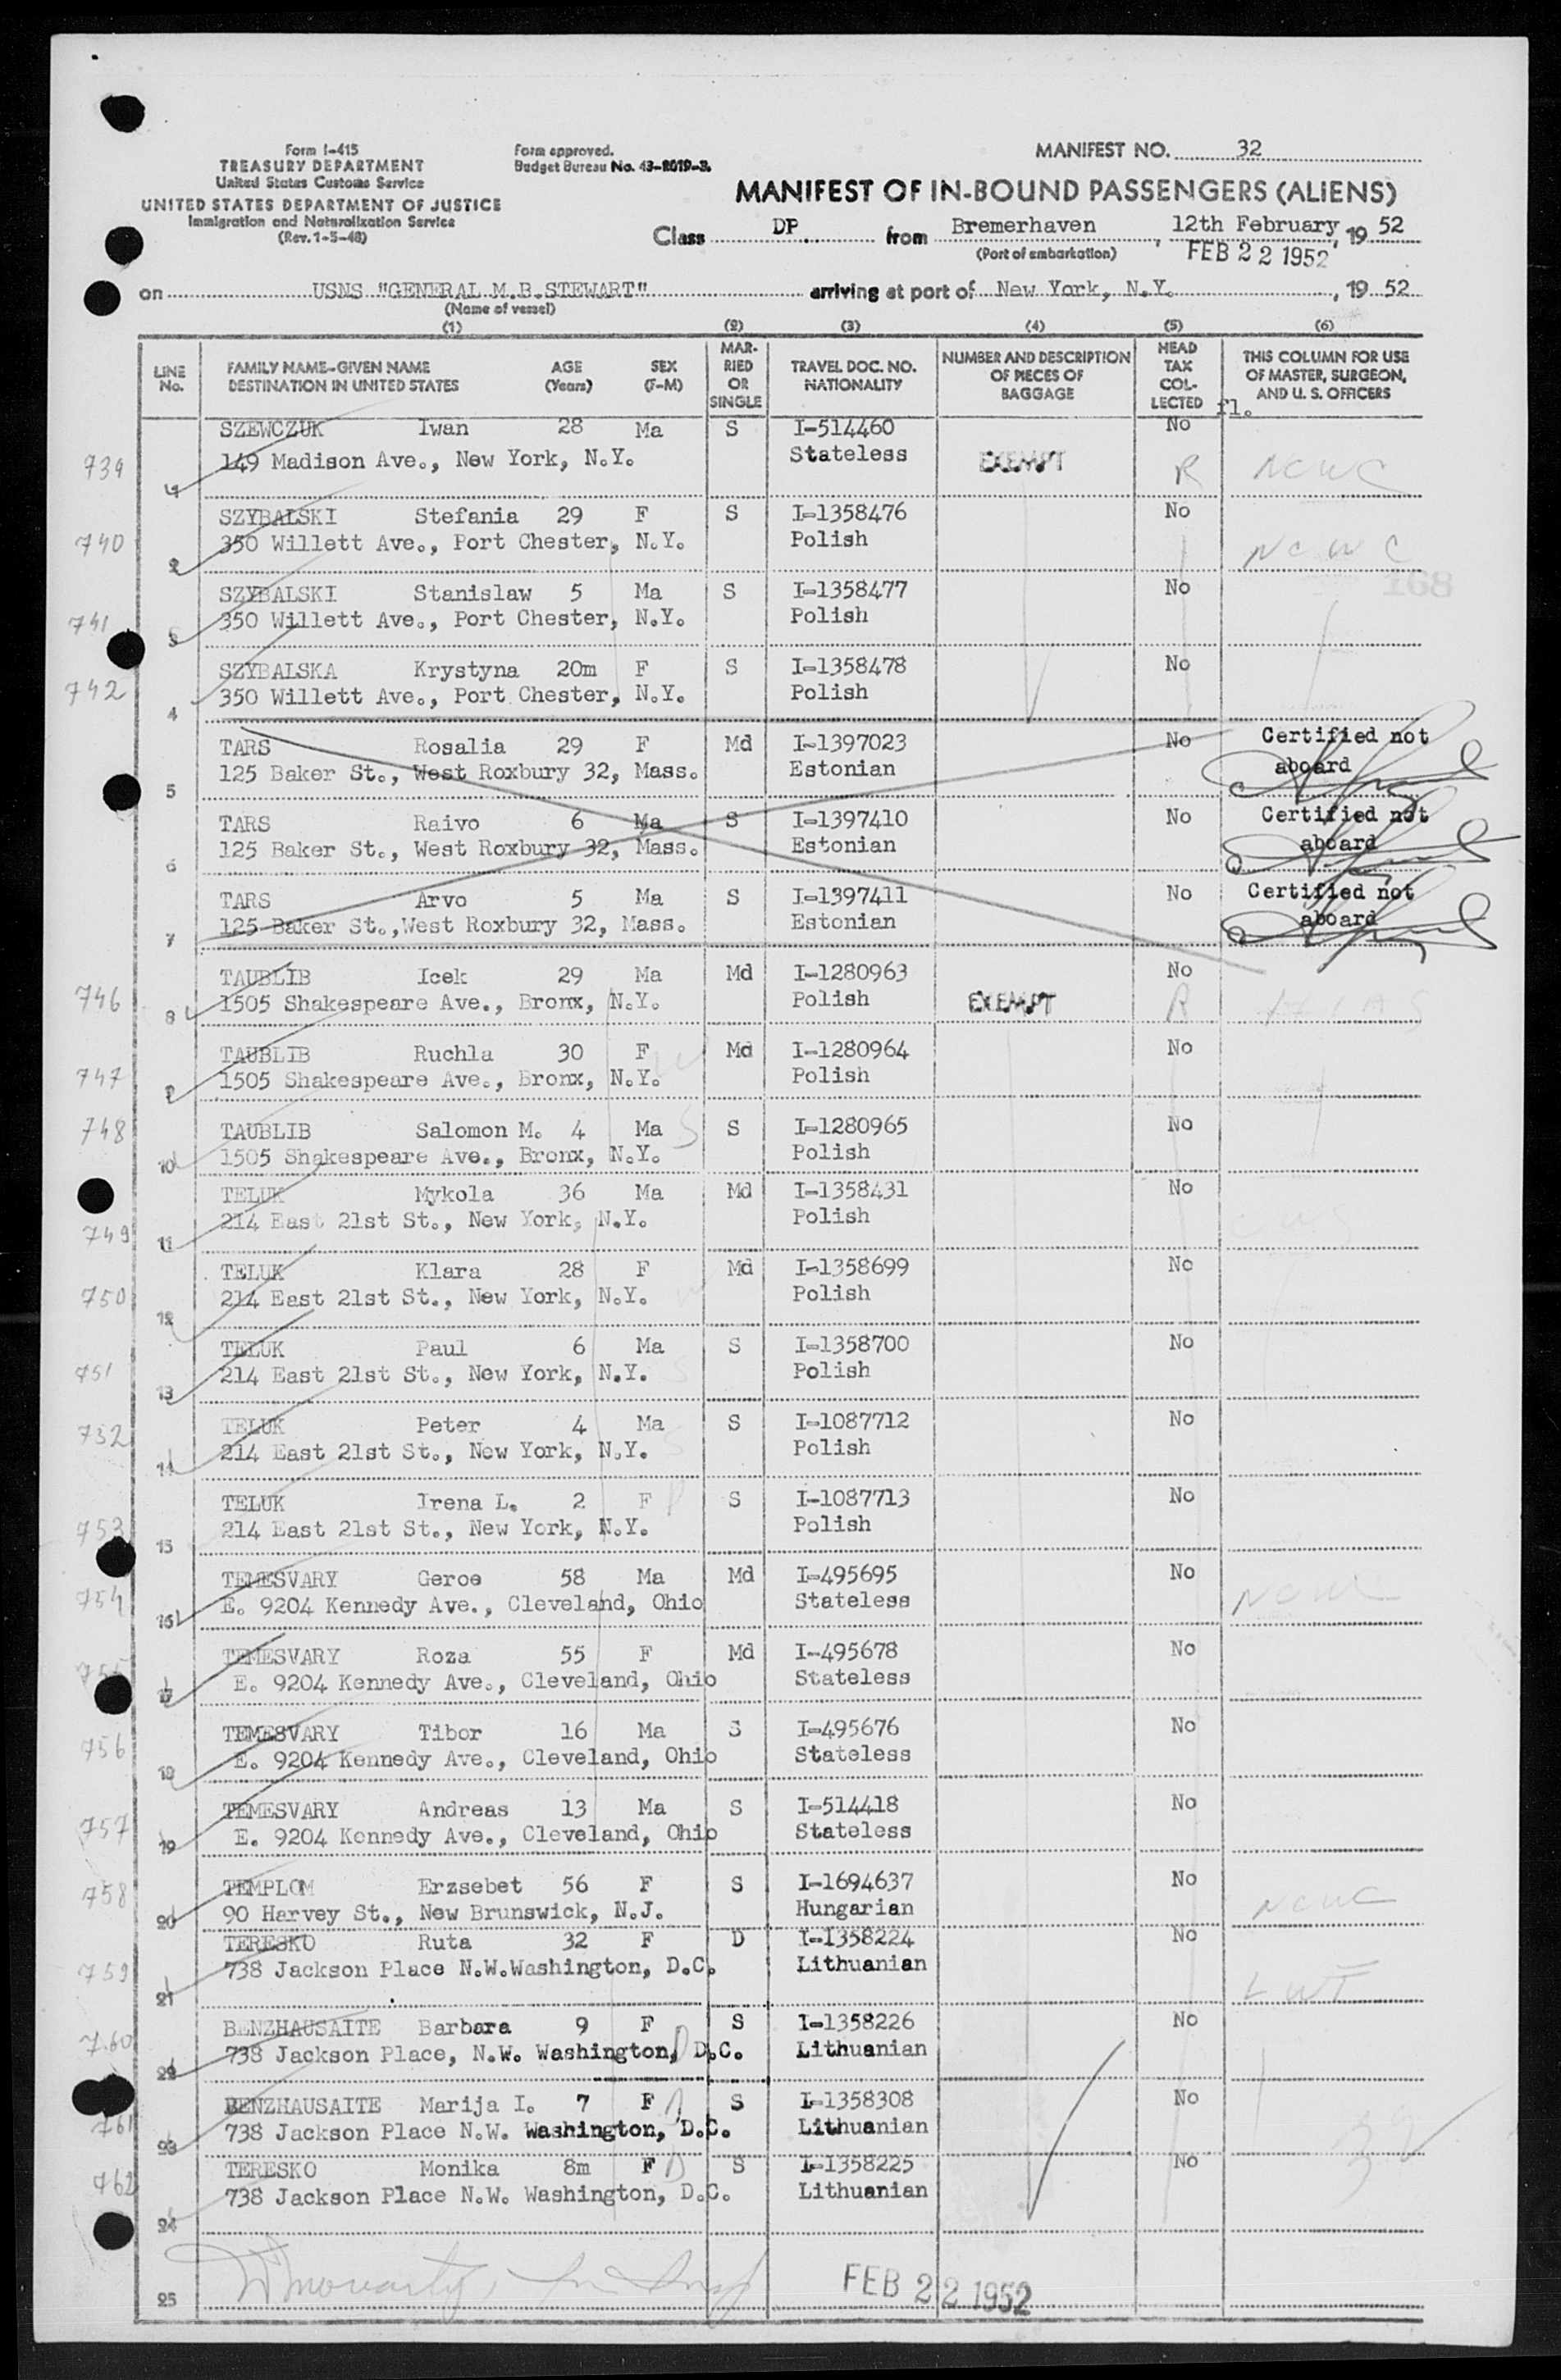 Form I-415
TREASURY DEPARTMENT
United States Customs Service
UNITED STATES DEPARTMENT OF JUSTICE
Immigration and Naturalization Service
(Rev. 1-5-48)
Form approved.
Budget Bureau No. 43-R019-3.
MANIFEST NO. 32
MANIFEST OF IN-BOUND PASSENGERS (ALIENS)
Class DP from Bremerhaven, 12th February, 19 52
(Port of embarkation) FEB 22 1952
on USNS "GENERAL M.B.STEWART" arriving at port of New York, N.Y., 19 52
(Name of vessel)
(1) (2) (3) (4) (5) (6)
LINE No. FAMILY NAME-GIVEN NAME DESTINATION IN UNITED STATES AGE (Years) SEX (F-M) MARRIED OR SINGLE TRAVEL DOC. NO. NATIONALITY NUMBER AND DESCRIPTION OF PIECES OF BAGGAGE HEAD TAX COLLECTED THIS COLUMN FOR USE OF MASTER, SURGEON, AND U. S. OFFICERS
fl.
SZEWCZUK Iwan 28 Ma S I-514460 No
739 149 Madison Ave., New York, N.Y. Stateless EXEMPT R NCWC
SZYBALSKI Stefania 29 F S I-1358476 No
740 2 350 Willett Ave., Port Chester, N.Y. Polish NCWC
168
SZYBALSKI Stanislaw 5 Ma S I-1358477 No
741 3 350 Willett Ave., Port Chester, N.Y. Polish
SZYBALSKA Krystyna 20m F S I-1358478 No
742 4 350 Willett Ave., Port Chester, N.Y. Polish
TARS Rosalia 29 F Md I-1397023 No Certified not
5 125 Baker St., West Roxbury 32, Mass. Estonian aboard
TARS Raivo 6 Ma S I-1397410 No Certified not
6 125 Baker St., West Roxbury 32, Mass. Estonian aboard
TARS Arvo 5 Ma S I-1397411 No Certified not
7 125 Baker St.,West Roxbury 32, Mass. Estonian aboard
TAUBLIB Icek 29 Ma Md I-1280963 No
746 8 1505 Shakespeare Ave., Bronx, N.Y. Polish EXEMPT R HIAS
TAUBLIB Ruchla 30 F Md I-1280964 No
747 9 1505 Shakespeare Ave., Bronx, N.Y. Polish
TAUBLIB Salomon M. 4 Ma S S I-1280965 No
748 10 1505 Shakespeare Ave., Bronx, N.Y. Polish
TELUK Mykola 36 Ma Md I-1358431 No
749 11 214 East 21st St., New York, N.Y. Polish
TELUK Klara 28 F Md I-1358699 No
750 12 214 East 21st St., New York, N.Y. Polish
TELUK Paul 6 Ma S I-1358700 No
751 13 214 East 21st St., New York, N.Y. Polish
TELUK Peter 4 Ma S I-1087712 No
752 14 214 East 21st St., New York, N.Y. Polish
TELUK Irena L. 2 F D S I-1087713 No
753 15 214 East 21st St., New York, N.Y. Polish
TEMESVARY Geroe 58 Ma Md I-495695 No
754 16 E. 9204 Kennedy Ave., Cleveland, Ohio Stateless NCWC
TEMESVARY Roza 55 F Md I-495678 No
755 17 E. 9204 Kennedy Ave., Cleveland, Ohio Stateless
TEMESVARY Tibor 16 Ma S I-495676 No
756 18 E. 9204 Kennedy Ave., Cleveland, Ohio Stateless
TEMESVARY Andreas 13 Ma S I-514418 No
757 19 E. 9204 Kennedy Ave., Cleveland, Ohio Stateless
TEMPLOM Erzsebet 56 F S I-1694637 No
758 20 90 Harvey St., New Brunswick, N.J. Hungarian NCWC
TERESKO Ruta 32 F D I-1358224 No
759 21 738 Jackson Place N.W.Washington, D.C. Lithuanian LWF
BENZHAUSAITE Barbara 9 F S I-1358226 No
760 22 738 Jackson Place, N.W. Washington, D.C. Lithuanian
BENZHAUSAITE Marija I. 7 F D S I-1358308 No
761 23 738 Jackson Place N.W. Washington, D.C. Lithuanian
TERESKO Monika 8m F D S I-1358225 No
762 24 738 Jackson Place N.W. Washington, D.C. Lithuanian
25 FEB 22 1952